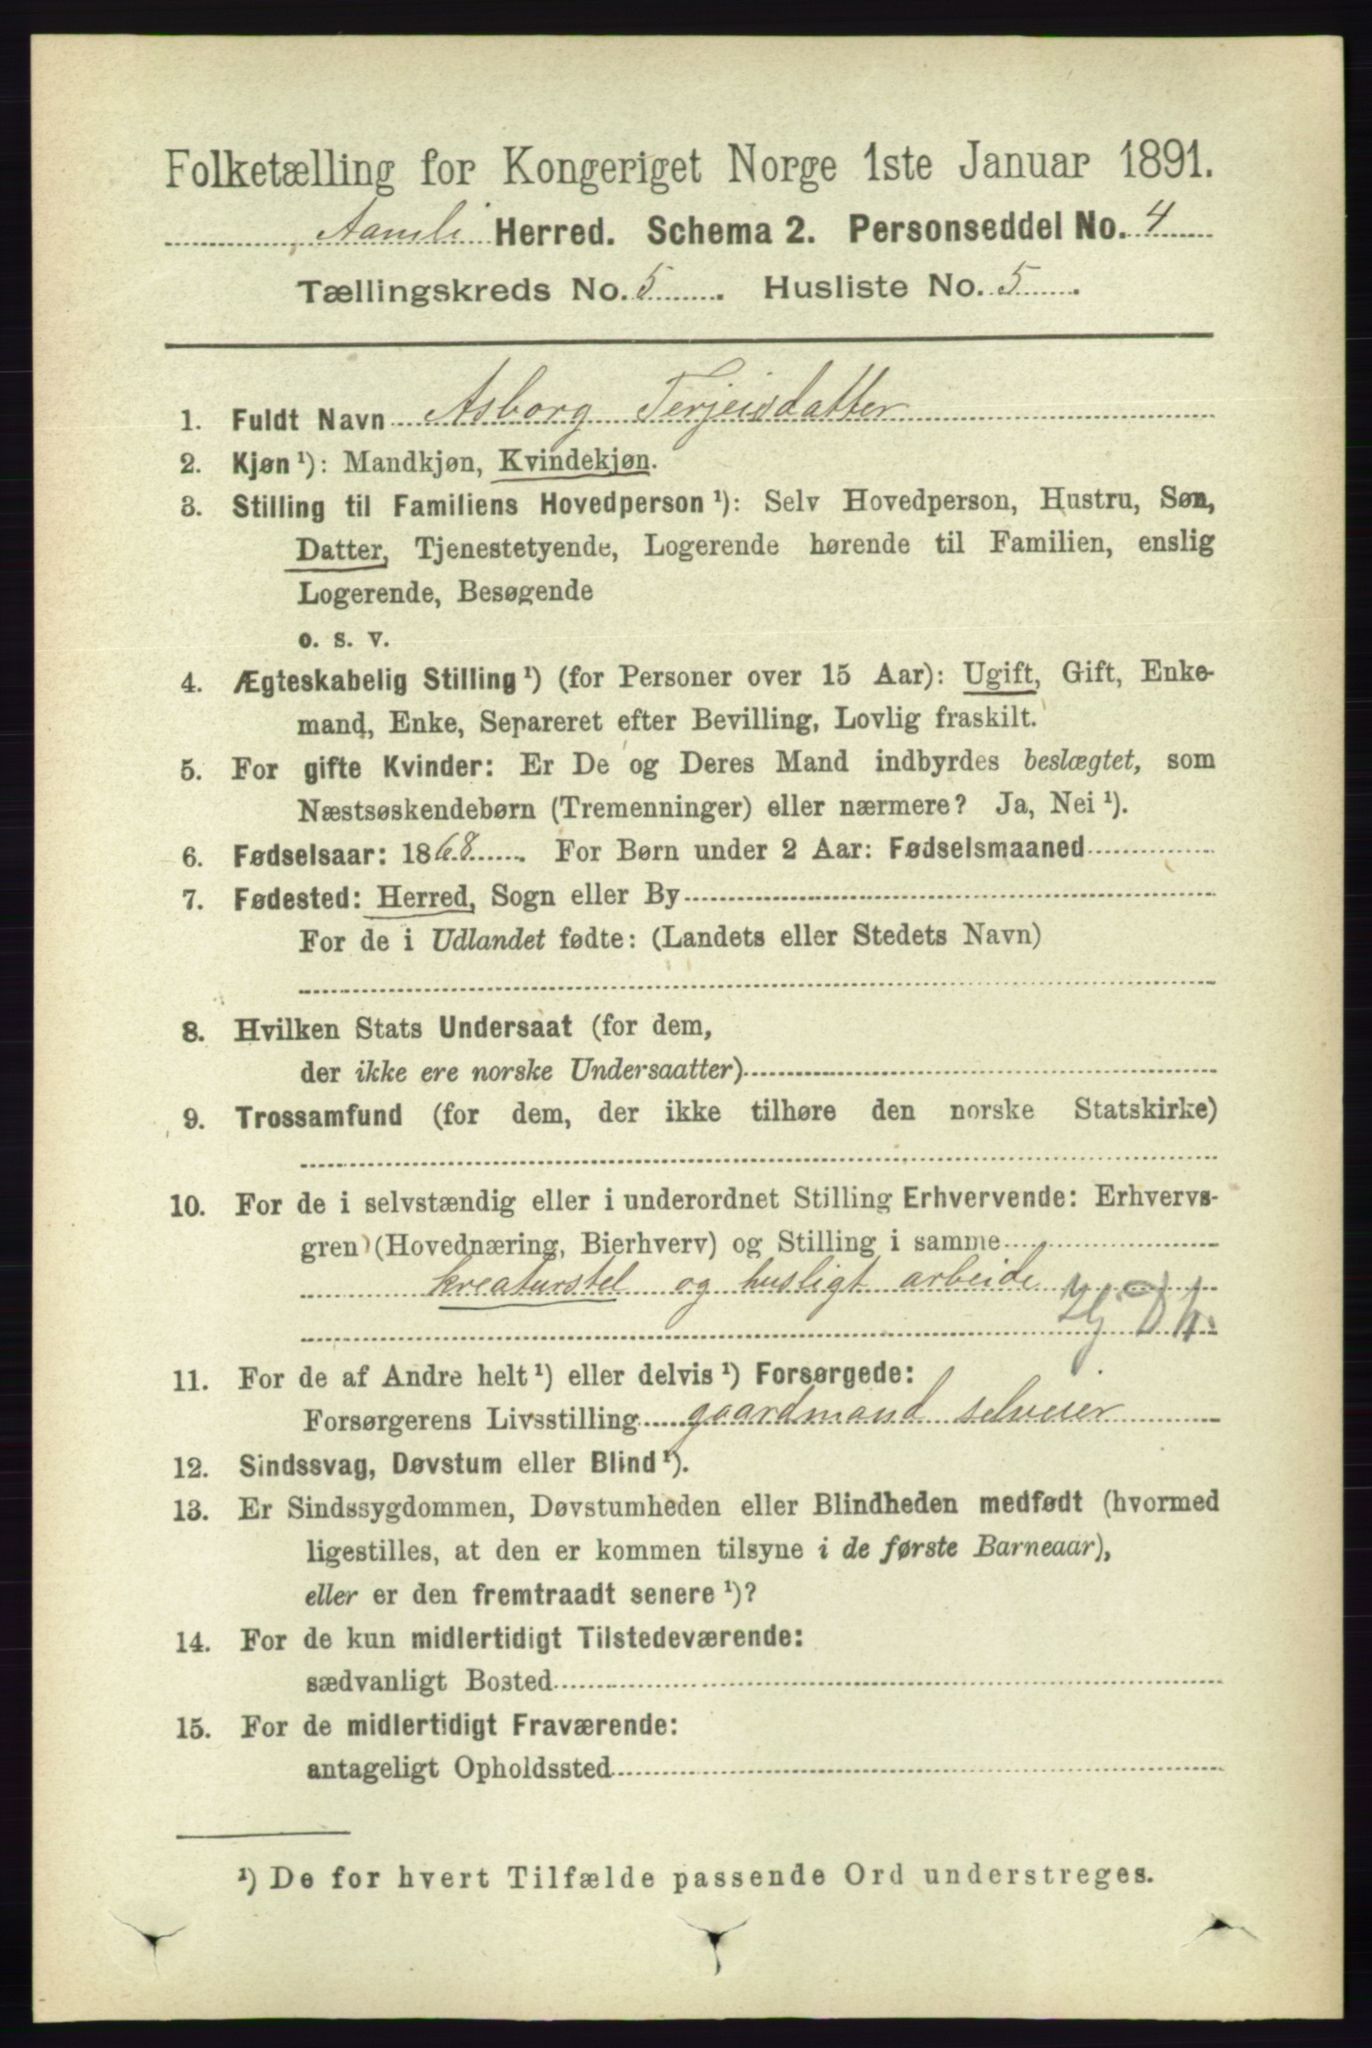 Folketælling for Kongeriget Norge 1ste Januar 1891.
Aamli Herred. Schema 2. Personseddel No. 4
Tællingskreds No. 5. Husliste No. 5.
1. Fuldt Navn Asborg Terjeisdatter
2. Kjøn ¹): Mandkjøn, Kvindekjøn.
3. Stilling til Familiens Hovedperson ¹): Selv Hovedperson, Hustru, Søn,
Datter, Tjenestetyende, Logerende hørende til Familien, enslig
Logerende, Besøgende
o. s. v.
4. Ægteskabelig Stilling ¹) (for Personer over 15 Aar): Ugift, Gift, Enke-
mand, Enke, Separeret efter Bevilling, Lovlig fraskilt.
5. For gifte Kvinder: Er De og Deres Mand indbyrdes beslægtet, som
Næstsøskendebørn (Tremenninger) eller nærmere? Ja, Nei ¹).
6. Fødselsaar: 1868. For Børn under 2 Aar: Fødselsmaaned
7. Fødested: Herred, Sogn eller By
For de i Udlandet fødte: (Landets eller Stedets Navn)
8. Hvilken Stats Undersaat (for dem,
der ikke ere norske Undersaatter)
9. Trossamfund (for dem, der ikke tilhøre den norske Statskirke)
10. For de i selvstændig eller i underordnet Stilling Erhvervende: Erhvervs-
gren (Hovednæring, Bierhverv) og Stilling i samme
kreaturstel og husligt arbeide
11. For de af Andre helt ¹) eller delvis ¹) Forsørgede:
Forsørgerens Livsstilling gaardmand selveier
12. Sindssvag, Døvstum eller Blind ¹).
13. Er Sindssygdommen, Døvstumheden eller Blindheden medfødt (hvormed
ligestilles, at den er kommen tilsyne i de første Barneaar),
eller er den fremtraadt senere ¹)?
14. For de kun midlertidigt Tilstedeværende:
sædvanligt Bosted
15. For de midlertidigt Fraværende:
antageligt Opholdssted
¹) De for hvert Tilfælde passende Ord understreges.